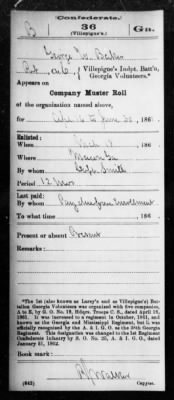 Confederate.
B 36 Ga.
(Villepigue's)
George W.
Pvt. Co. C, Villepigue's Indpt. Batt'n,
Georgia Volunteers.*
Appears on
Company Muster Roll
of the organization named above,
for to June 30, 186
Enlisted:
When , 186
Where Macon Ga
By whom Capt. Smith
Period 12 mos
Last paid:
By whom
To what time , 186
Present or absent Present
Remarks:
*The 1st (also known as Larey's and as Villepigue's) Battalion
Georgia Volunteers was organized with five companies,
A to E, by G. O. No. 19, Hdqrs. Troops C. S., dated April 19,
1861. It was increased to a regiment in October, 1861, and
known as the Georgia and Mississippi Regiment, but it was
officially recognized by the A. & I. G. O. as the 36th Georgia
Regiment. This designation was changed to the 1st Regiment
Confederate Infantry by S. O. No. 25, A. & I. G. O., dated
January 31, 1862.
Book mark:
(642) Copyist.